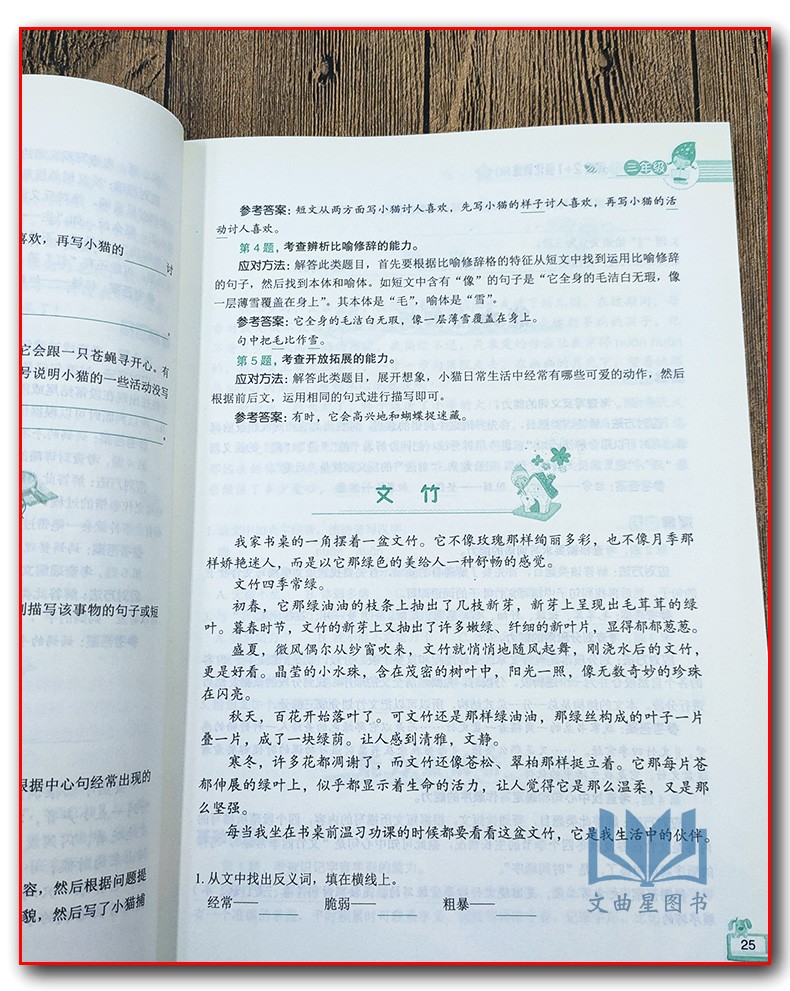 喜欢，再写小猫的______讨
它会跟一只苍蝇寻开心。有
号说明小猫的一些活动没写
别描写该事物的句子或短
根据中心句经常出现的
容，然后根据问题提
貌，然后写了小猫捕
三年级
参考答案：短文从两方面写小猫讨人喜欢，先写小猫的样子讨人喜欢，再写小猫的活
动讨人喜欢。
第4题，考查辨析比喻修辞的能力。
应对方法：解答此类题目，首先要根据比喻修辞格的特征从短文中找到运用比喻修辞
的句子，然后找到本体和喻体。如短文中含有“像”的句子是“它全身的毛洁白无瑕，像
一层薄雪覆盖在身上”。其本体是“毛”，喻体是“雪”。
参考答案：它全身的毛洁白无瑕，像一层薄雪覆盖在身上。
句中把毛比作雪。
第5题，考查开放拓展的能力。
应对方法：解答此类题目，展开想象，小猫日常生活中经常有哪些可爱的动作，然后
根据前后文，运用相同的句式进行描写即可。
参考答案：有时，它会高兴地和蝴蝶捉迷藏。
文竹
我家书桌的一角摆着一盆文竹。它不像玫瑰那样绚丽多彩，也不像月季那
样娇艳迷人，而是以它那绿色的美给人一种舒畅的感觉。
文竹四季常绿。
初春，它那绿油油的枝条上抽出了几枝新芽，新芽上呈现出毛茸茸的绿
叶。暮春时节，文竹的新芽上又抽出了许多嫩绿、纤细的新叶片，显得郁郁葱葱。
盛夏，微风偶尔从纱窗吹来，文竹就悄悄地随风起舞，刚浇水后的文竹，
更是好看。晶莹的小水珠，含在茂密的树叶中，阳光一照，像无数奇妙的珍珠
在闪亮。
秋天，百花开始落叶了。可文竹还是那样绿油油，那绿丝构成的叶子一片
叠一片，成了一块绿荫。让人感到清雅，文静。
寒冬，许多花都凋谢了，而文竹还像苍松、翠柏那样挺立着。它那每片苍
郁伸展的绿叶上，似乎都显示着生命的活力，让人觉得它是那么温柔，又是那
么坚强。
每当我坐在书桌前温习功课的时候都要看看这盆文竹，它是我生活中的伙伴。
1. 从文中找出反义词，填在横线上。
经常——______ 脆弱——______ 粗暴——______
文曲星图书
25